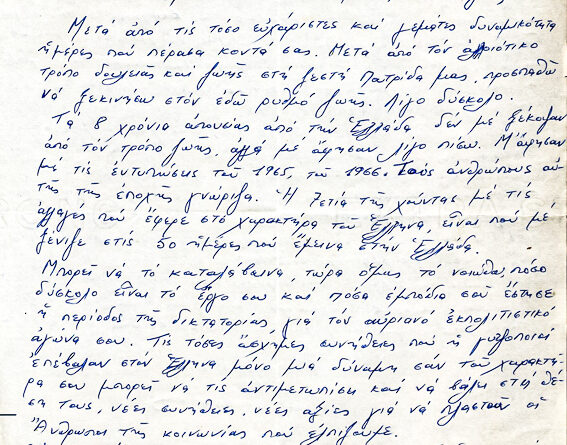 Μετά ἀπό τίς τόσο εὐχάριστες καί γεμάτες δυναμικότητα
ἡμέρες πού πέρασα κοντά σας. Μετά ἀπό τόν ἀλλοιότικο
τρόπο δουλειᾶς καί ζωῆς στή ζεστή Πατρίδα μας, προσπαθῶ
νά ξεκινήσω στόν ἐδῶ ρυθμό ζωῆς. Λίγο δύσκολο.
Τά 8 χρόνια ἀπουσίας ἀπό τήν Ἑλλάδα δέν μέ ξέκοψαν
ἀπό τόν τρόπο ζωῆς, ἀλλά μέ ἄφησαν λίγο πίσω. Μ'ἄφησαν
μέ τίς ἐντυπώσεις τοῦ 1965, τοῦ 1966. Τούς ἀνθρώπους αὐ-
τῆς τῆς ἐποχῆς γνώριζα. Ἡ 7ετία τῆς χούντας μέ τίς
ἀλλαγές πού ἔφερε στό χαρακτήρα τοῦ Ἕλληνα, εἶναι πού μέ
ξένιζε στίς 50 ἡμέρες πού ἔμεινα στήν Ἑλλάδα.
Μπορεῖ νά τό καταλάβαινα, τώρα ὅμως τό νοιώθω, πόσο
δύσκολο εἶναι τό ἔργο σου καί πόσα ἐμπόδια σοῦ ἔστησε
ἡ περίοδος τῆς δικτατορίας, γιά τόν αὐριανό ἐκπολιτιστικό
ἀγώνα σου. Τίς τόσες ἄσχημες συνήθειες πού ἡ
ἐπέβαλαν στόν Ἕλληνα μόνο μιά δύναμη σάν τοῦ χαρακτή-
ρα σου μπορεῖ νά τίς ἀντιμετωπίσει καί νά βάλει στή θέ-
ση τους, νέες συνήθειες, νέες ἀξίες γιά νά πλαστοῦν οἱ
Ἄνθρωποι τῆς κοινωνίας πού ἐλπίζουμε.